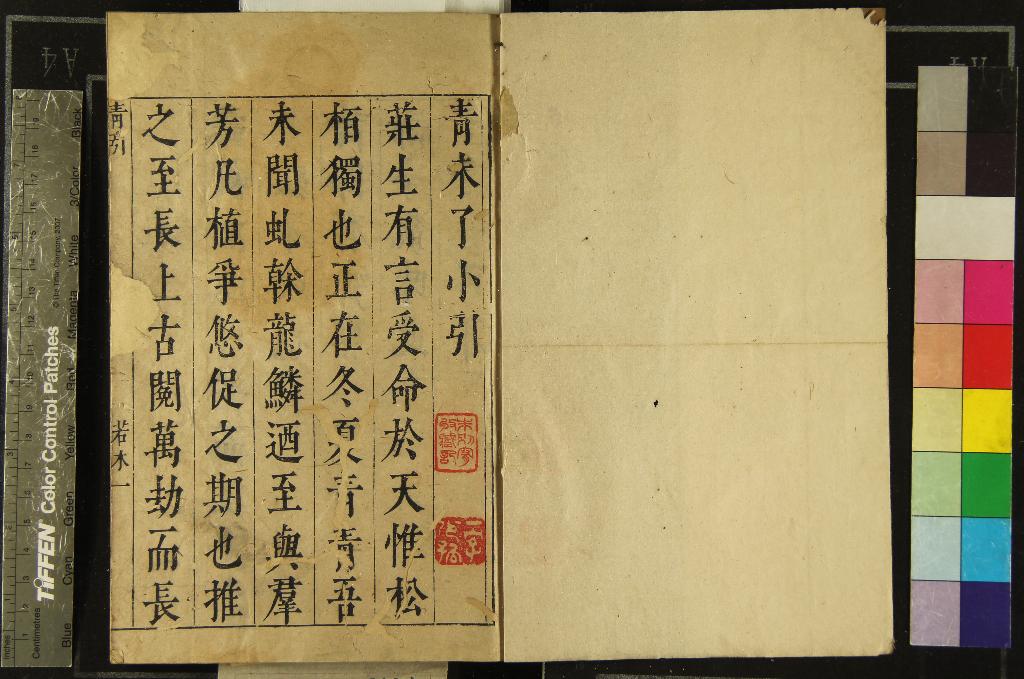 青未了小引
莊生有言受命於天惟松
栢獨也正在冬夏青青吾
未聞虬榦龍鱗迺至與羣
芳凡植爭悠促之期也推
之至長上古閱萬劫而長
青引
若木一
A4
TIFFEN Color Control Patches
© The Tiffen Company, 2007
Inches
Centimetres
Blue
Cyan
Green
Yellow
Red
Magenta
White
3/Color
Black